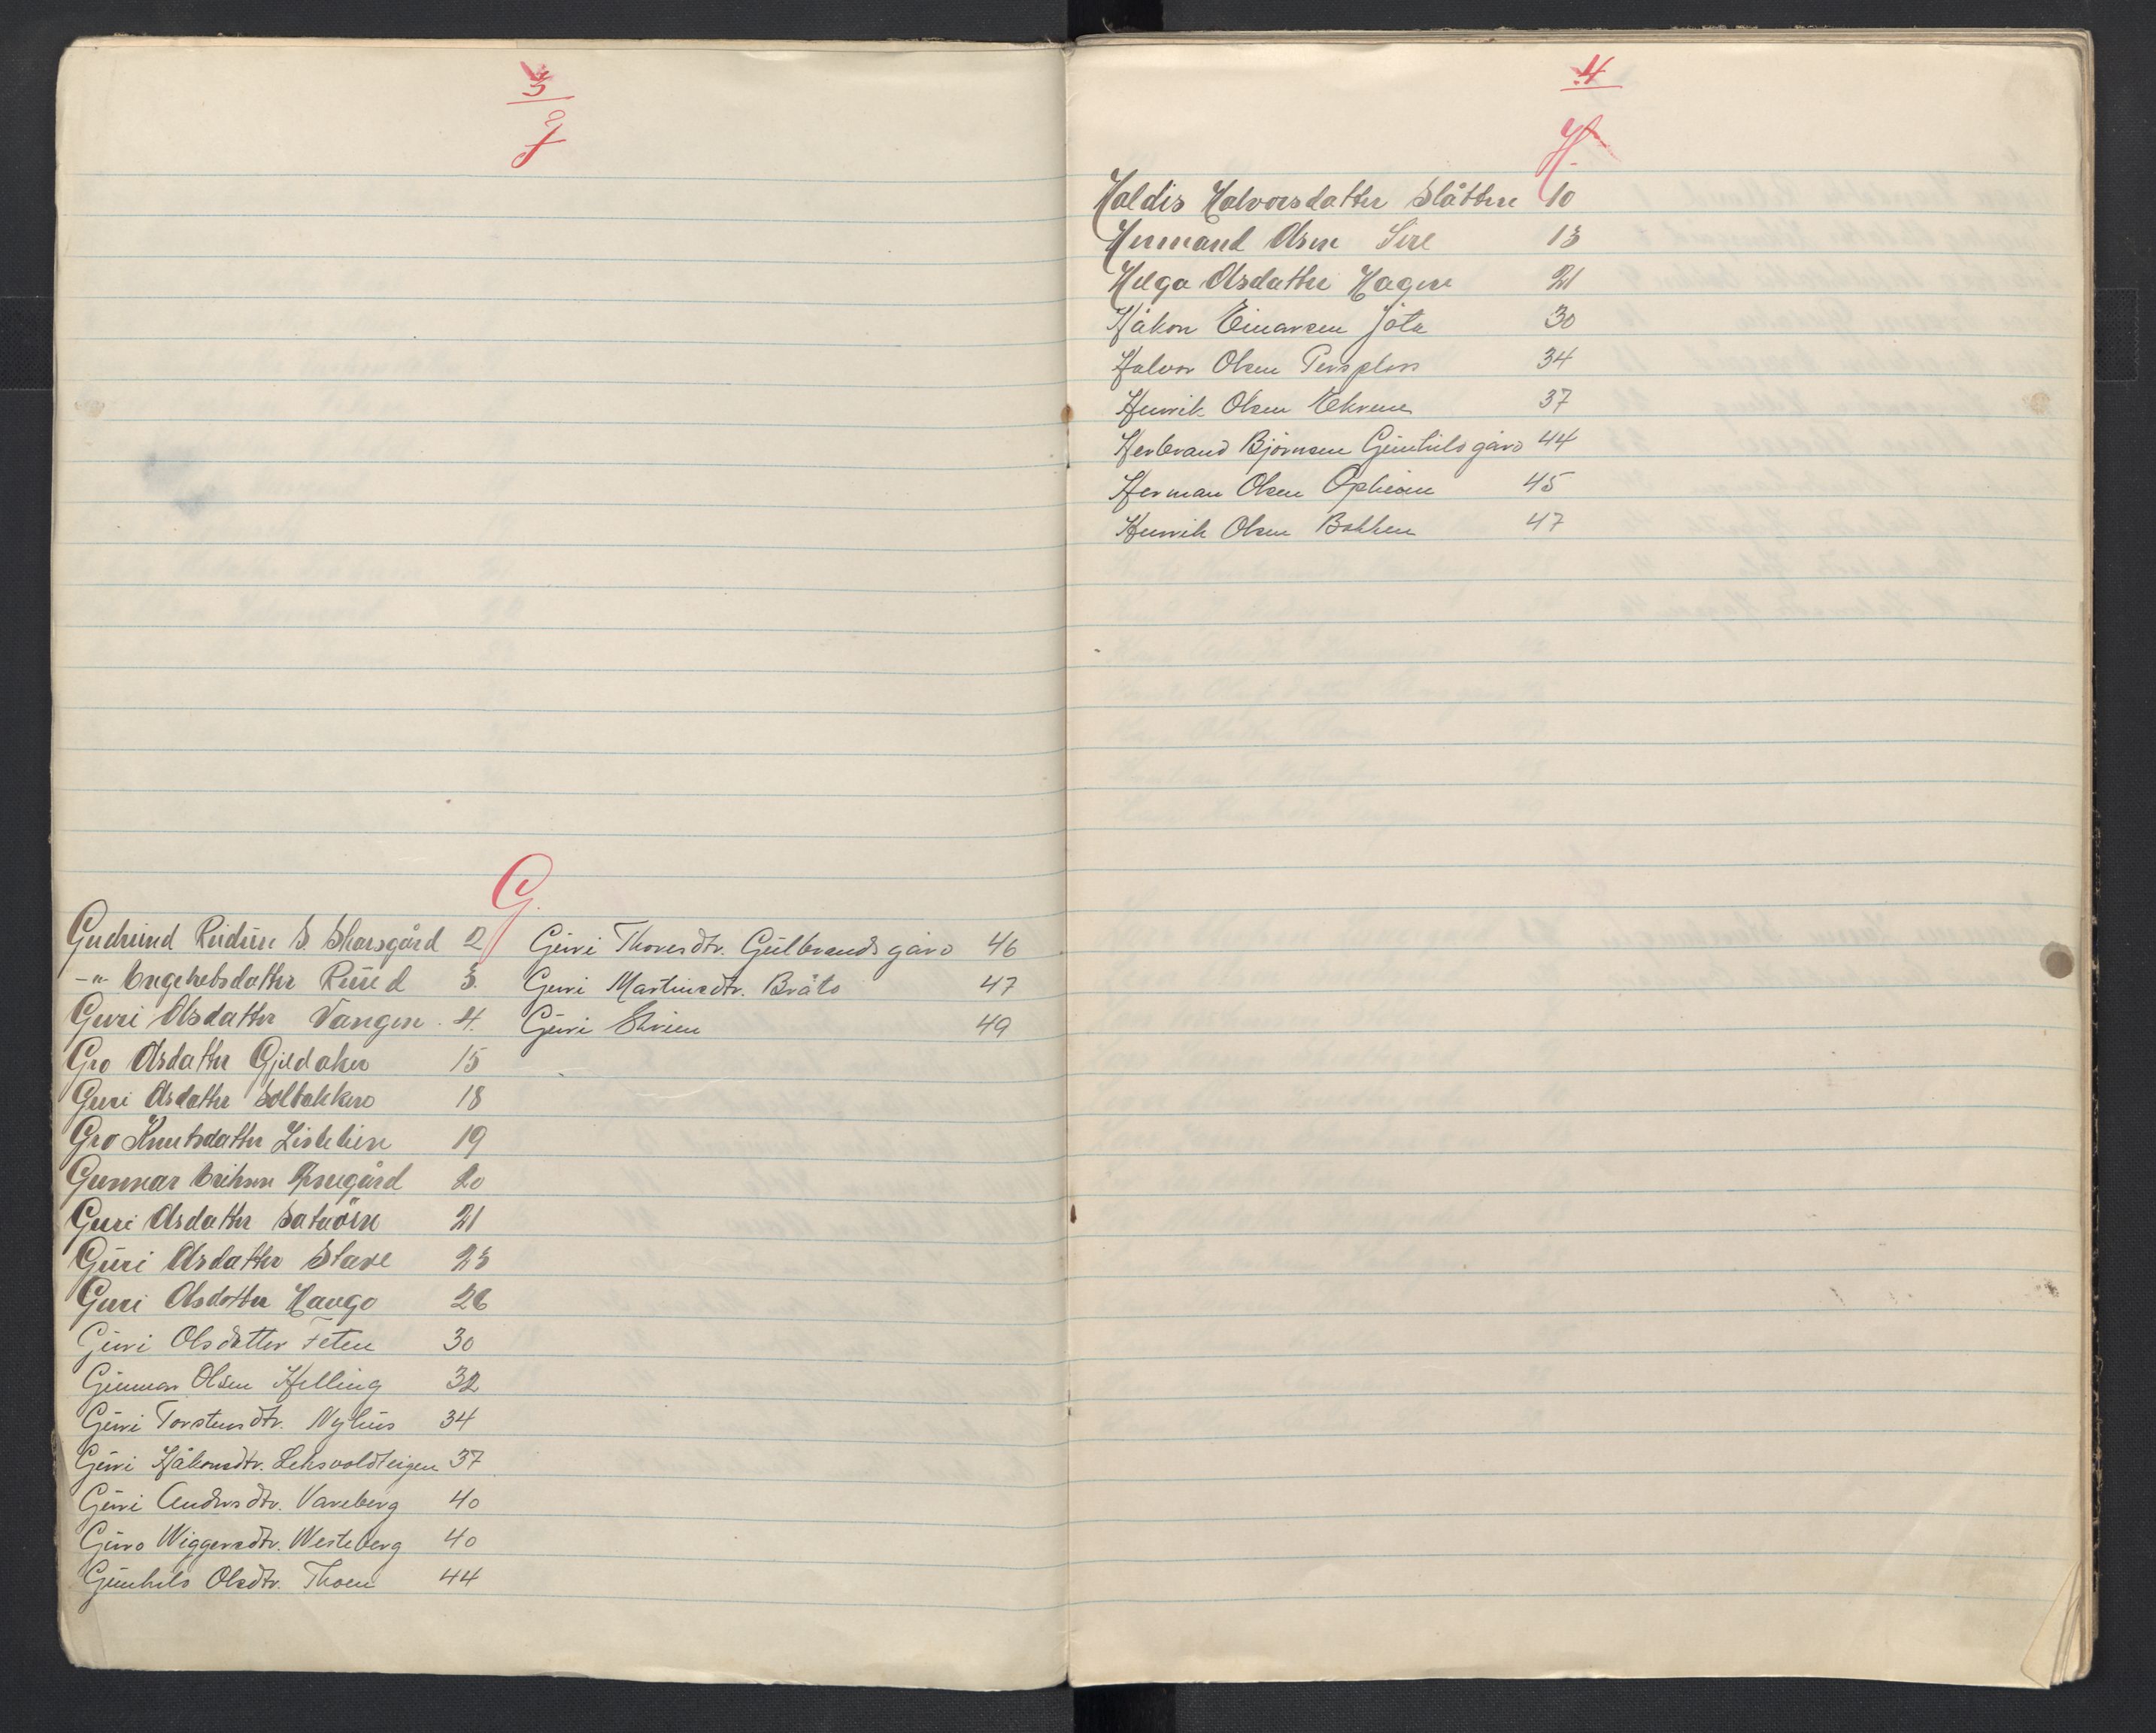 3
F
G.
Gudrund Reidun S. Skarsgård 2
-"- Engebretsdatter Ruud 3.
Guri Olsdatter Vangen. 4.
Gro Olsdatter Gjeldaker 15
Guri Olsdatter Solbakken 18
Gro Knutsdatter Lislelien 19
Gunnar Eriksen 20
Guri Olsdatter Sataöen 21
Guri Olsdatter Stave 23
Guri Olsdatter Haugo 26
Guri Olsdatter Feten 30
Gunnar Olsen Helling 32
Guri Torstensdtr. Nyhus 34
Guri Håkonsdtr. Leksvoldteigen 37
Guri Andersdtr. Vareberg 40
Guro Wiggersdtr. Westeberg 40
Gunhild Olsdtr. Thoen 44
Guri Thoresdtr. Gulbrandsgård 46
Guri Martinsdtr. Bråto 47
Guri Ekren 49
4
H.
Haldis Halvorsdatter Slåtten 10
Hermand Olsen Sire 13
Helga Olsdatter Hagen 21
Håkon Einarsen Jota 30
Halvor Olsen Persplass 34
Henrik Olsen Ekren 37
Herbrand Björnsen Gunhildsgård 44
Herman Olsen Opheim 45
Henrik Olsen Bakken 47